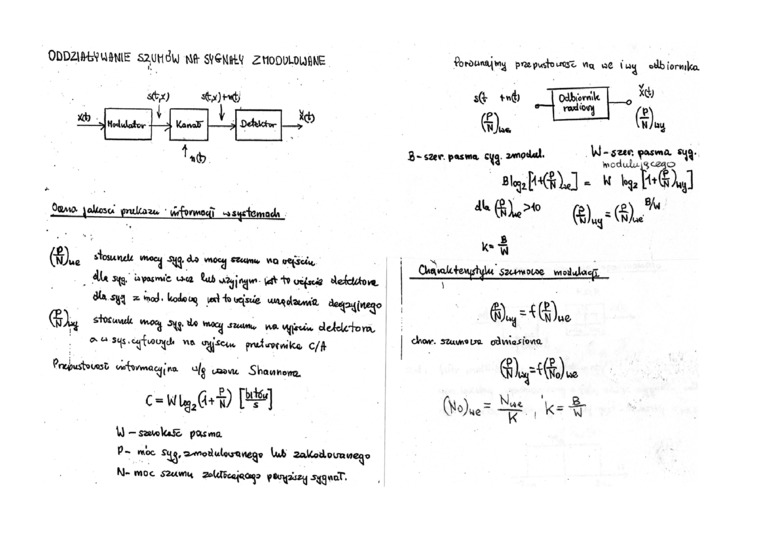 ODDZIAŁYWANIE SZUMÓW NA SYGNAŁY ZMODULOWANE
s(t,x) s(t,x)+n(t)
x(t) Modulator Kanał Detektor x̌(t)
n(t)
Ocena jakości przekazu informacji w systemach
(P/N)we stosunek mocy syg. do mocy szumu na wejściu
dla syg. w paśmie wcz lub użyjnym. jest to wejście detektora
dla syg z mod. kodową jest to wejście urządzenia decyzyjnego
(P/N)wy stosunek mocy syg. do mocy szumu na wyjściu detektora
a w sys. cyfrowych na wyjściu przetwornika C/A
Przepustowość informacyjna w/g wzoru Shannona
C = W log₂(1+P/N) [bitów/s]
W – szerokość pasma
P – moc syg. zmodulowanego lub zakodowanego
N – moc szumu zakłócającego powyższy sygnał.
Porównajmy przepustowość na we i wy odbiornika
s(t +n(t) Odbiornik radiowy x̌(t)
(P/N)we (P/N)wy
B – szer. pasma syg. zmodul. W – szer. pasma syg.
modulującego
B log₂[1+(P/N)we] = W log₂[1+(P/N)wy]
dla (P/N)we >10 (P/N)wy = (P/N)we^B/W
K = B/W
Charakterystyki szumowe modulacji
(P/N)wy = f(P/N)we
char. szumowa odniesiona
(P/N)wy = f(P/N₀)we
(N₀)we = Nwe/K , K = B/W